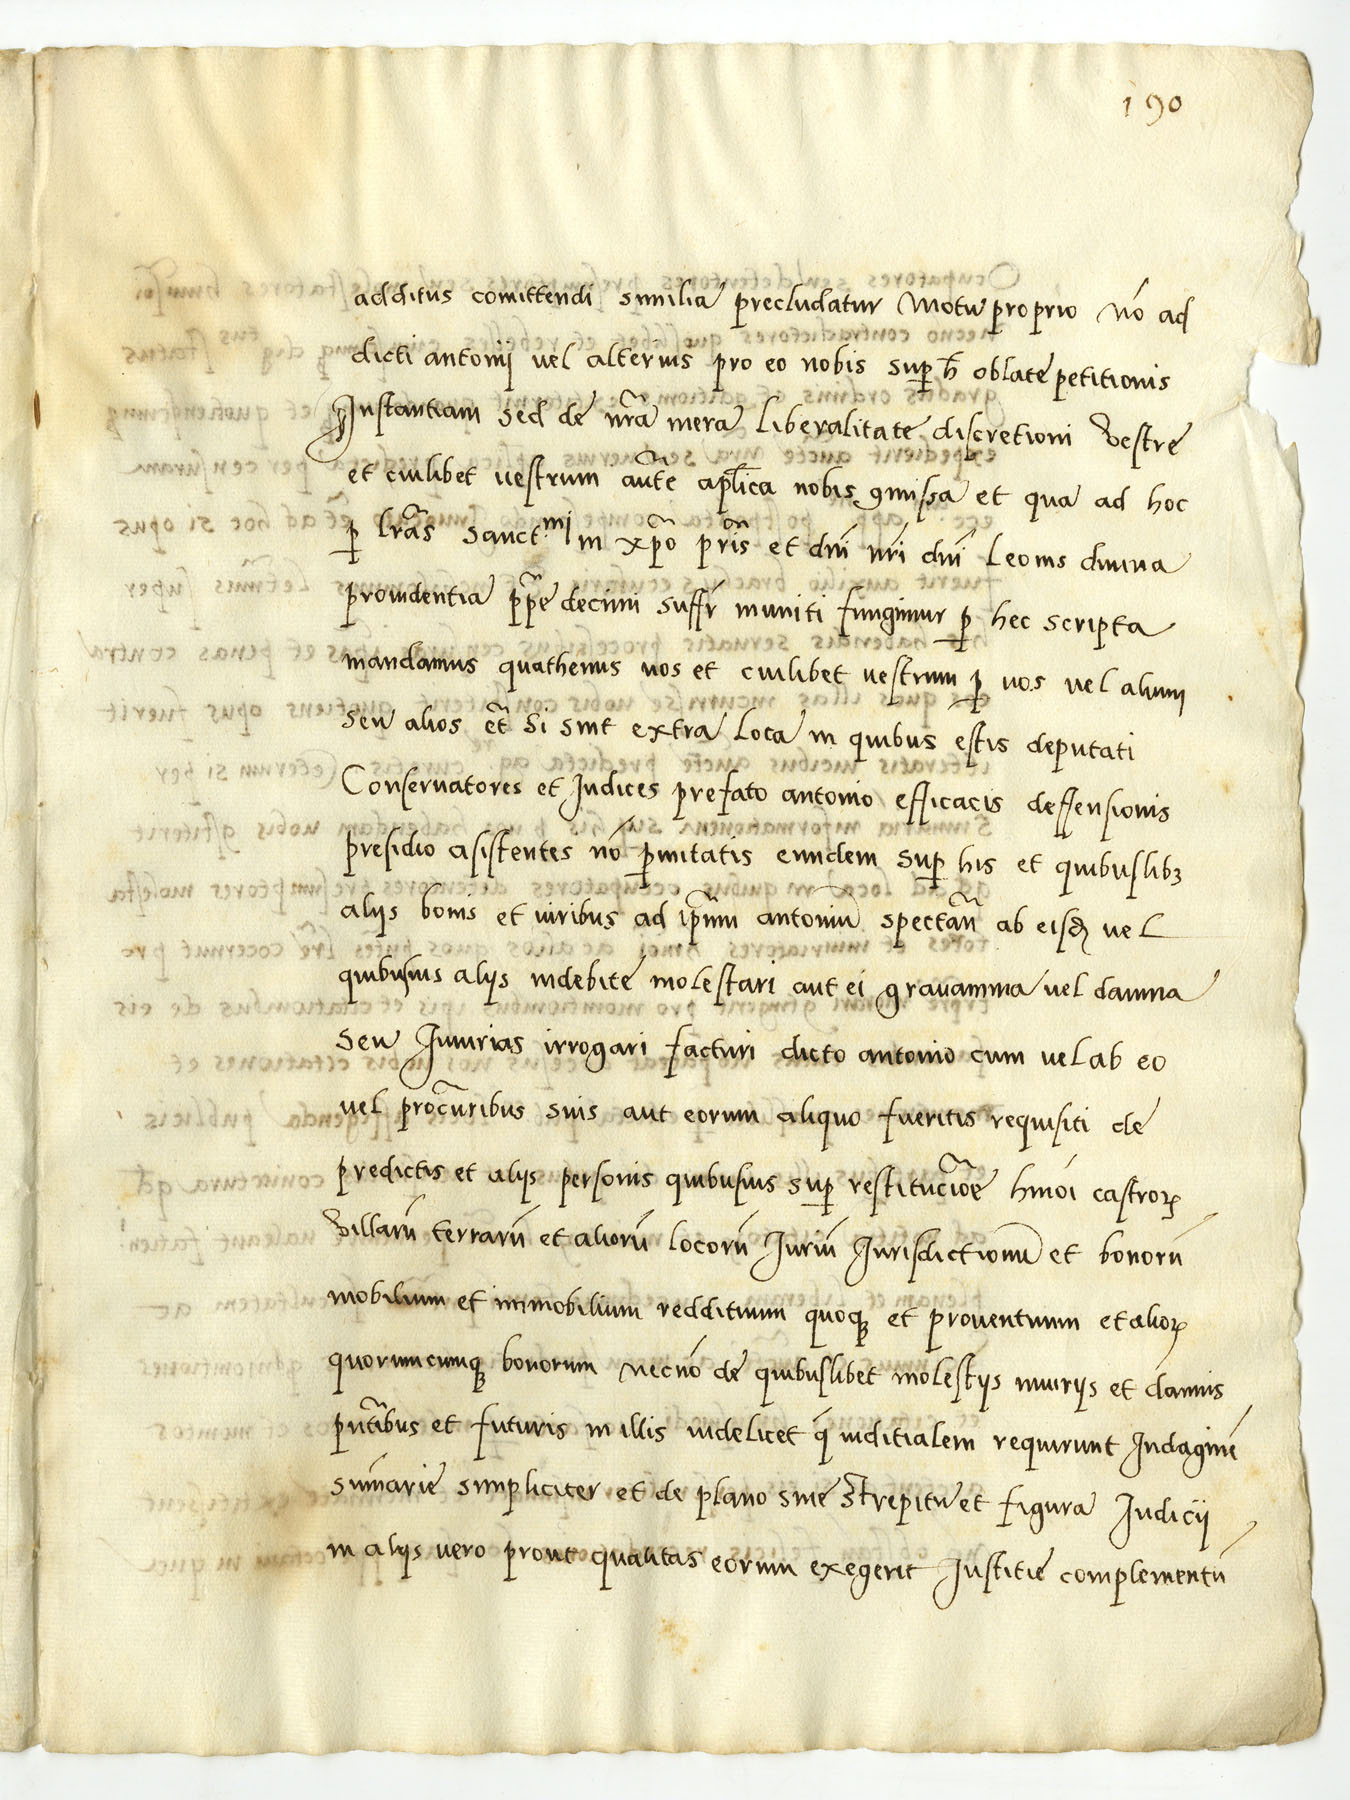 190
additus comittendi similia precludatur Motu proprio nō ad
dicti antonij vel alterius pro eo nobis sup̱ h̄ oblate petitionis
Instantiam sed de nr̄a mera liberalitate discretioni Vestre
et cuilibet vestrum auc̄te apl̄ica nobis ꝯmissa et qua ad hoc
ꝑ lr̄as Sanct.mi in xp̄o pr̄is et dn̄i nr̄i dn̄i Leonis divina
providentia pp̄e decimi suffr̄ muniti fungimur ꝑ hec scripta
mandamus quathenus vos et cuilibet vestrum ꝑ vos vel alium
seu alios et̄ si sint extra loca in quibus estis deputati
Conservatores et Judices prefato antonio efficacis deffensionis
presidio asistentes nō ꝑmitatis eundem suꝑ his et quibuslibꝫ
alijs bonis et iuribus ad ip̄um antoniū spectan̄ ab eisd vel
quibusvis alijs indebite molestari aut ei gravamina vel damna
seu Iniurias irrogari facturi dicto antonio cum vel ab eo
vel procur̄ibus suis aut eorum aliquo fueritis requisiti de
predictis et alijs personis quibusvis suꝑ restituciōe hmōi castroꝝ
Villarū terrarū et aliorū locorū Iuriū Jurisdictionū et bonorū
mobilium et immobilium reddituum quoqꝫ et proventuum et alioꝝ
quorumcumqꝫ bonorum necnō de quibuslibet molestijs iniurijs et damnis
pn̄tibus et futuris in illis videlicet q̄ iuditialem requirunt Indaginē
sūmarie simpliciter et de plano sine strepitu et figura Judicij
in alijs vero prout qualitas eorum exegerit Justitie complementū